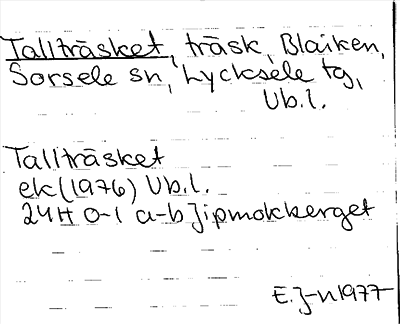 Tallträsket, träsk, Blaiken,
Sorsele sn, Lycksele tg,
Vb.l.
Tallträsket
ek (1976) Vb.l.
24H 0-1 a-b Jipmokberget
E.J-n 1977